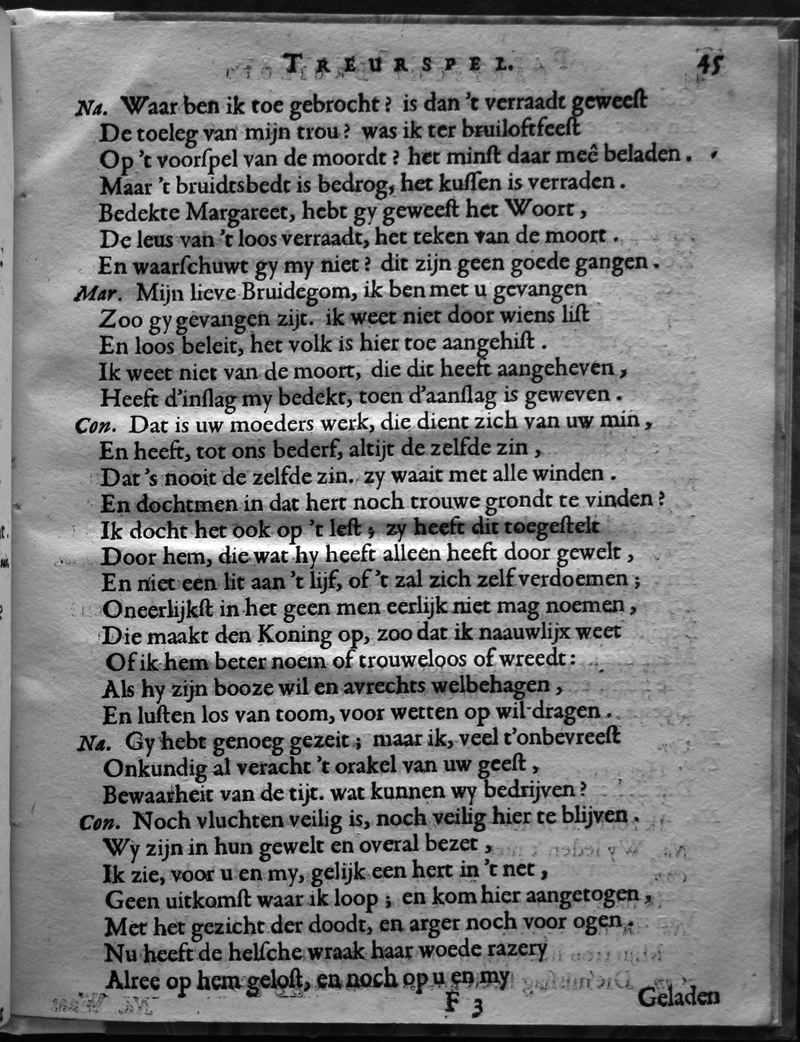 TREURSPEL. 45
Na. Waar ben ik toe gebrocht? is dan 't verraadt geweeſt
De toeleg van mijn trou? was ik ter bruiloftfeeſt
Op 't voorſpel van de moordt? het minſt daar meê beladen.
Maar 't bruidtsbedt is bedrog, het kuſſen is verraden.
Bedekte Margareet, hebt gy geweeſt het Woort,
De leus van 't loos verraadt, het teken van de moort.
En waarſchuwt gy my niet? dit zijn geen goede gangen.
Mar. Mijn lieve Bruidegom, ik ben met u gevangen
Zoo gy gevangen zijt. ik weet niet door wiens liſt
En loos beleit, het volk is hier toe aangehiſt.
Ik weet niet van de moort, die dit heeft aangeheven,
Heeft d'inſlag my bedekt, toen d'aanſlag is geweven.
Con. Dat is uw moeders werk, die dient zich van uw min,
En heeft, tot ons bederf, altijt de zelfde zin,
Dat 's nooit de zelfde zin. zy waait met alle winden.
En dochtmen in dat hert noch trouwe grondt te vinden?
Ik docht het ook op 't leſt; zy heeft dit toegeſtelt
Door hem, die wat hy heeft alleen heeft door gewelt,
En niet een lit aan 't lijf, of 't zal zich zelf verdoemen;
Oneerlijkſt in het geen men eerlijk niet mag noemen,
Die maakt den Koning op, zoo dat ik naauwlijx weet
Of ik hem beter noem of trouweloos of wreedt:
Als hy zijn booze wil en avrechts welbehagen,
En luſten los van toom, voor wetten op wil dragen.
Na. Gy hebt genoeg gezeit; maar ik, veel t'onbevreeſt
Onkundig al veracht 't orakel van uw geeſt,
Bewaarheit van de tijt. wat kunnen wy bedrijven?
Con. Noch vluchten veilig is, noch veilig hier te blijven.
Wy zijn in hun gewelt en overal bezet,
Ik zie, voor u en my, gelijk een hert in 't net,
Geen uitkomſt waar ik loop; en kom hier aangetogen,
Met het gezicht der doodt, en arger noch voor ogen.
Nu heeft de helſche wraak haar woede razery
Alree op hem geloſt, en noch op u en my
F 3 Geladen